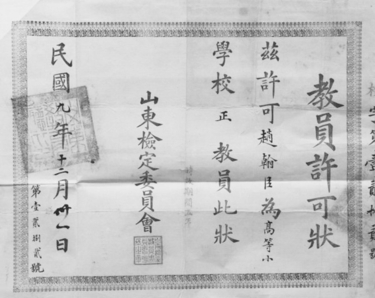 教員許可狀
茲許可趙翰臣為高等小
學校正教員此狀
山東檢定委員會
民國九年十二月卅一日
第壹貳捌貳號